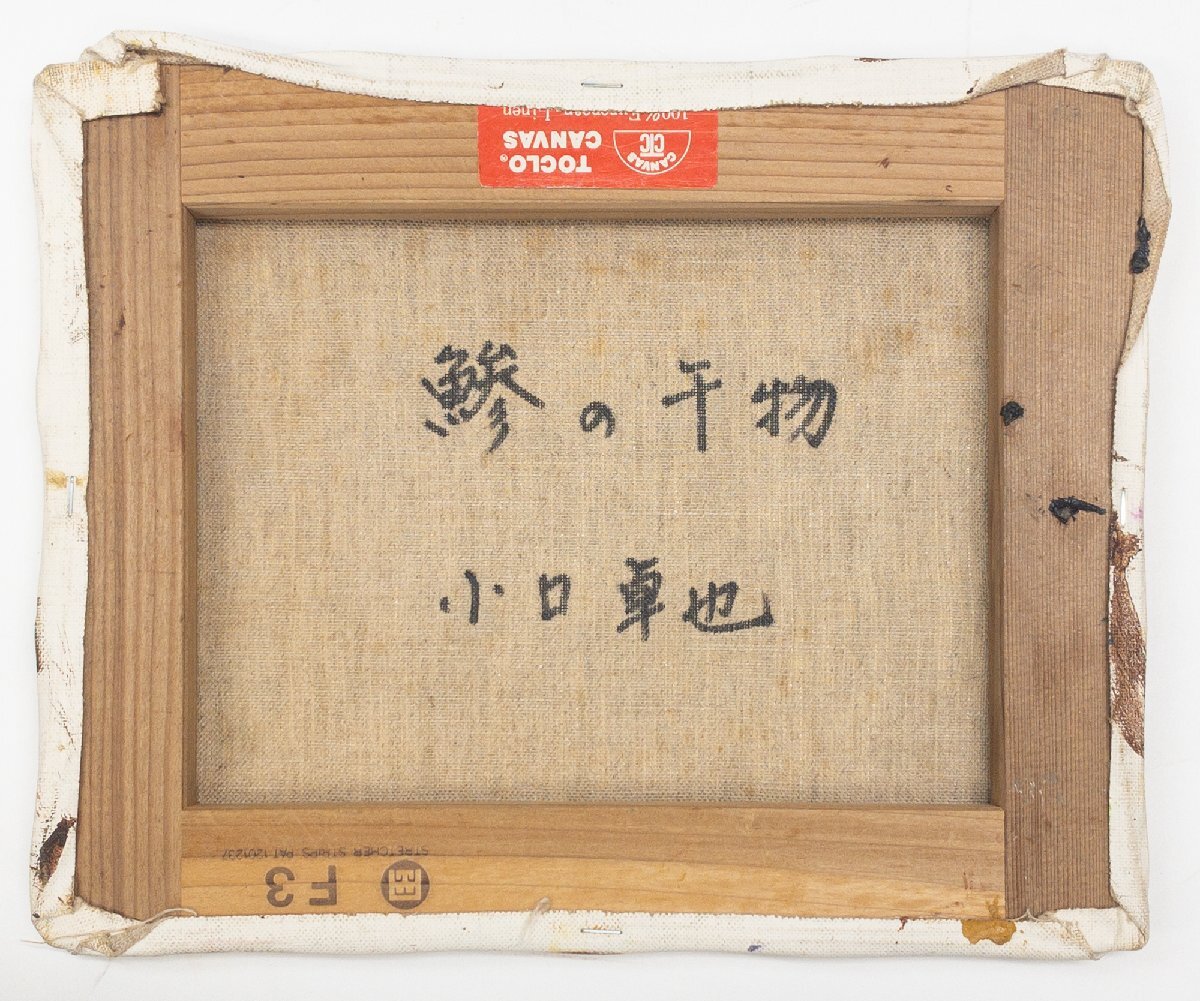 100% European Linen
TOCLO. CANVAS
CANVAS CTC
鰺の干物
小口卓也
STRETCHER STRIPS PAT.
F3